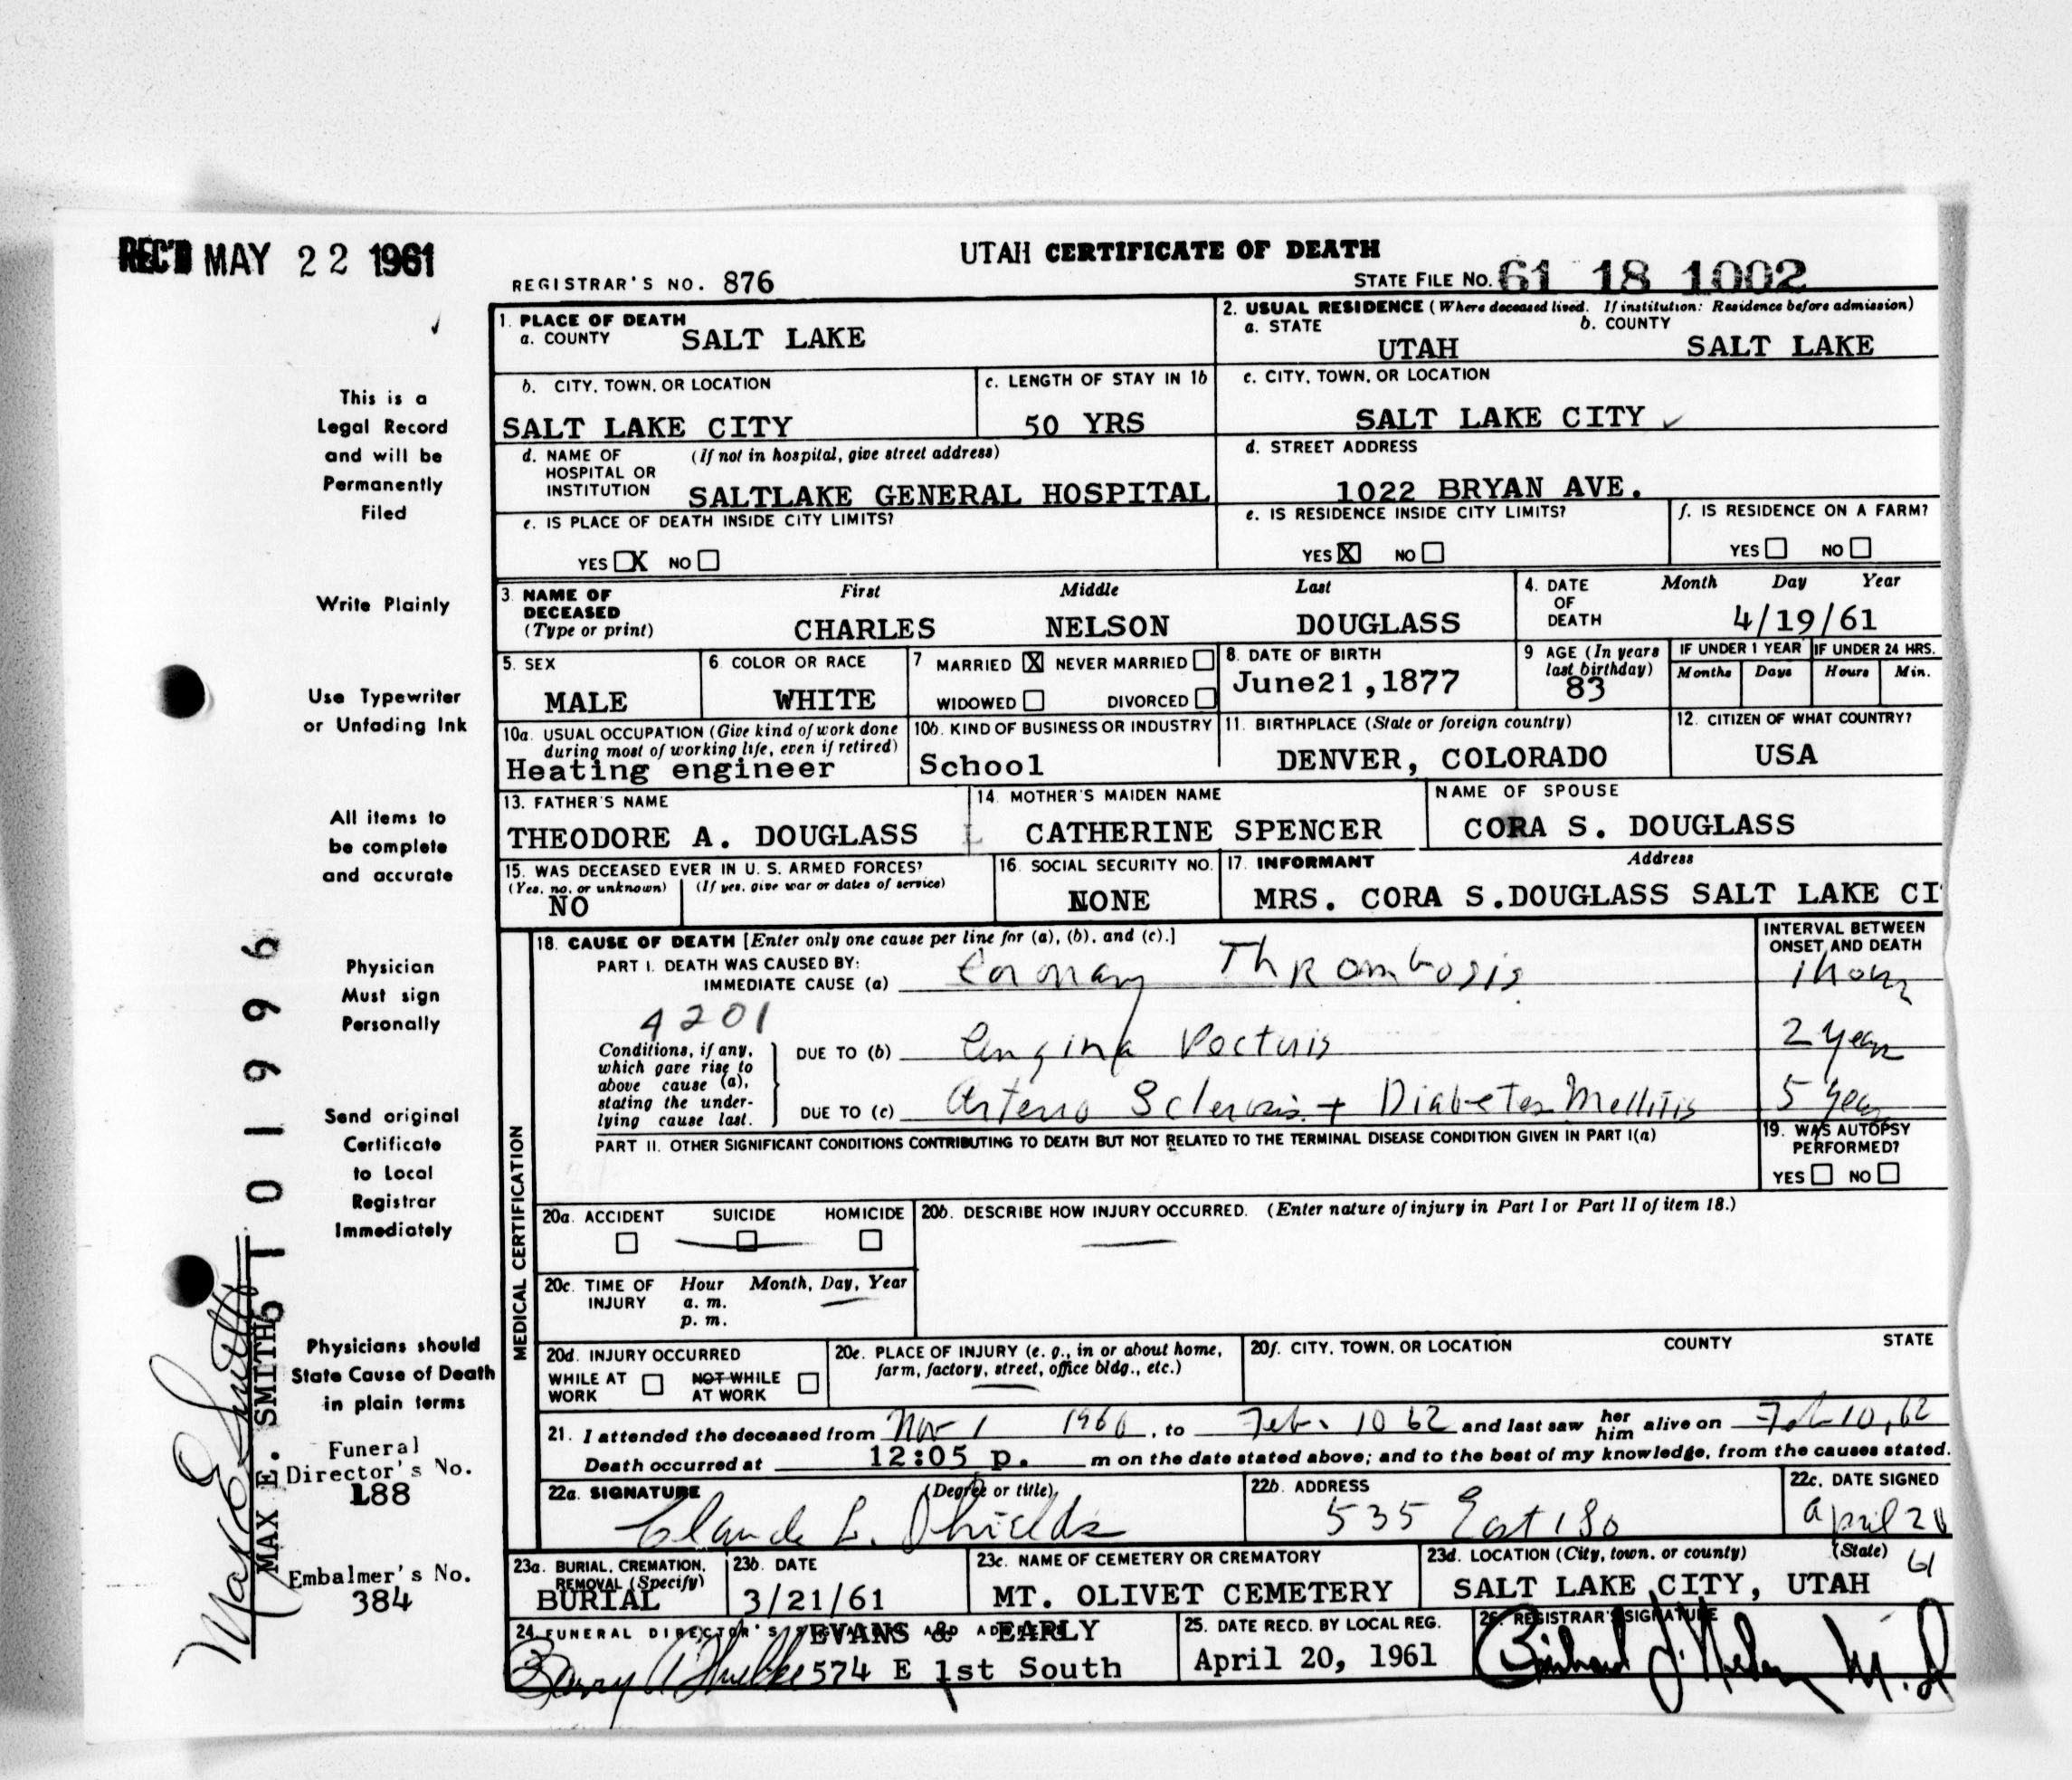 REC'D MAY 22 1961
UTAH CERTIFICATE OF DEATH
REGISTRAR'S NO. 876
STATE FILE NO. 61 18 1002
This is a
Legal Record
and will be
Permanently
Filed
Write Plainly
Use Typewriter
or Unfading Ink
All items to
be complete
and accurate
Physician
Must sign
Personally
Send original
Certificate
to Local
Registrar
Immediately
Physicians should
State Cause of Death
in plain terms
Funeral
Director's No.
188
Embalmer's No.
384
5101996
MAX E. SMITH
Max E Smith
1. PLACE OF DEATH
a. COUNTY SALT LAKE
2. USUAL RESIDENCE (Where deceased lived. If institution: Residence before admission)
a. STATE UTAH
b. COUNTY SALT LAKE
b. CITY, TOWN, OR LOCATION
SALT LAKE CITY
c. LENGTH OF STAY IN 1b
50 YRS
c. CITY, TOWN, OR LOCATION
SALT LAKE CITY
d. NAME OF (If not in hospital, give street address)
HOSPITAL OR
INSTITUTION SALTLAKE GENERAL HOSPITAL
d. STREET ADDRESS
1022 BRYAN AVE.
e. IS PLACE OF DEATH INSIDE CITY LIMITS?
YES X NO
e. IS RESIDENCE INSIDE CITY LIMITS?
YES X NO
f. IS RESIDENCE ON A FARM?
YES NO
3. NAME OF
DECEASED
(Type or print)
First Middle Last
CHARLES NELSON DOUGLASS
4. DATE
OF
DEATH
Month Day Year
4/19/61
5. SEX
MALE
6. COLOR OR RACE
WHITE
7 MARRIED X NEVER MARRIED
WIDOWED DIVORCED
8. DATE OF BIRTH
June21,1877
9 AGE (In years
last birthday)
83
IF UNDER 1 YEAR IF UNDER 24 HRS.
Months Days Hours Min.
10a. USUAL OCCUPATION (Give kind of work done
during most of working life, even if retired)
Heating engineer
10b. KIND OF BUSINESS OR INDUSTRY
School
11. BIRTHPLACE (State or foreign country)
DENVER, COLORADO
12. CITIZEN OF WHAT COUNTRY?
USA
13. FATHER'S NAME
THEODORE A. DOUGLASS
14. MOTHER'S MAIDEN NAME
CATHERINE SPENCER
NAME OF SPOUSE
CORA S. DOUGLASS
15. WAS DECEASED EVER IN U. S. ARMED FORCES?
(Yes, no, or unknown) (If yes, give war or dates of service)
NO
16. SOCIAL SECURITY NO.
NONE
17. INFORMANT Address
MRS. CORA S.DOUGLASS SALT LAKE CI
MEDICAL CERTIFICATION
18. CAUSE OF DEATH [Enter only one cause per line for (a), (b), and (c).]
INTERVAL BETWEEN
ONSET AND DEATH
PART I. DEATH WAS CAUSED BY:
IMMEDIATE CAUSE (a) Coronary Thrombosis 1 hour
4201
Conditions, if any,
which gave rise to
above cause (a),
stating the under-
lying cause last.
DUE TO (b) Angina Pectoris 2 year
DUE TO (c) Arterio Sclerosis + Diabetes Mellitis 5 year
PART II. OTHER SIGNIFICANT CONDITIONS CONTRIBUTING TO DEATH BUT NOT RELATED TO THE TERMINAL DISEASE CONDITION GIVEN IN PART I(a)
19. WAS AUTOPSY
PERFORMED?
YES NO
20a. ACCIDENT SUICIDE HOMICIDE
20b. DESCRIBE HOW INJURY OCCURRED. (Enter nature of injury in Part I or Part II of item 18.)
20c. TIME OF Hour Month, Day, Year
INJURY a. m.
p. m.
20d. INJURY OCCURRED
WHILE AT NOT WHILE
WORK AT WORK
20e. PLACE OF INJURY (e. g., in or about home,
farm, factory, street, office bldg., etc.)
20f. CITY, TOWN, OR LOCATION COUNTY STATE
21. I attended the deceased from Nov 1 1960, to Feb. 10 62 and last saw her him alive on Feb 10, 62
Death occurred at 12:05 p. m on the date stated above; and to the best of my knowledge, from the causes stated.
22a. SIGNATURE (Degree or title)
Claude L. Shields
22b. ADDRESS
535 East 1 So
22c. DATE SIGNED
April 20
61
23a. BURIAL, CREMATION,
REMOVAL (Specify)
BURIAL
23b. DATE
3/21/61
23c. NAME OF CEMETERY OR CREMATORY
MT. OLIVET CEMETERY
23d. LOCATION (City, town, or county) (State)
SALT LAKE CITY, UTAH
24. FUNERAL DIRECTOR'S SIGNATURE AND ADDRESS
EVANS & EARLY
574 E 1st South
25. DATE RECD. BY LOCAL REG.
April 20, 1961
26. REGISTRAR'S SIGNATURE
M.D